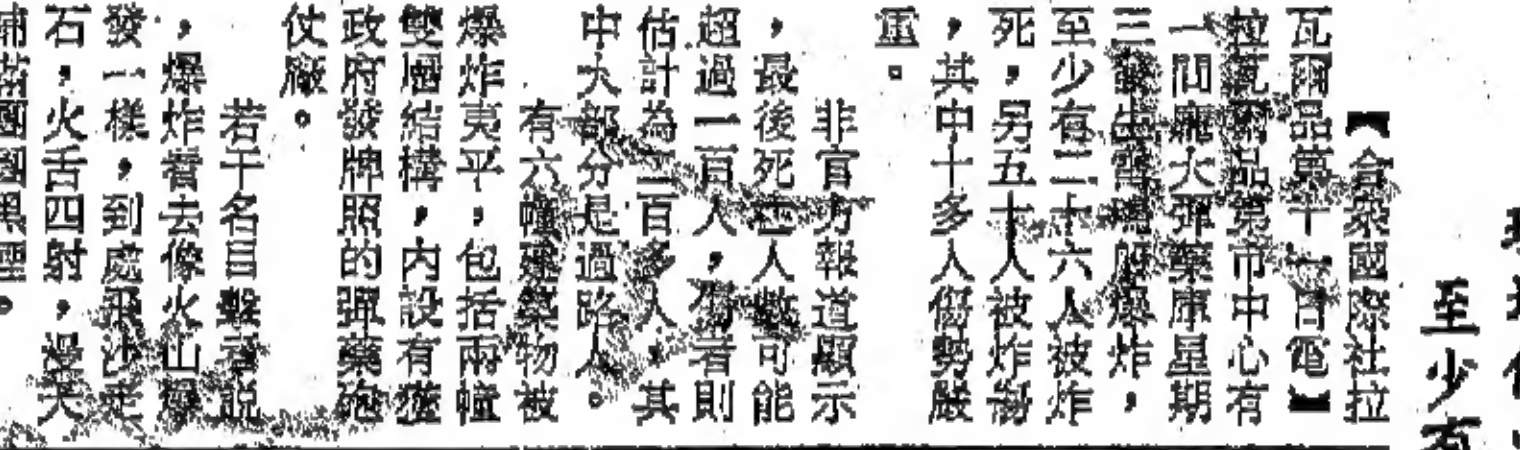 至少有
【合眾國際社拉
瓦爾品第十一日電】
拉瓦爾品第市中心有
一間龐大彈藥庫星期
三發生雷鳴般爆炸，
至少有二十六人被炸
死，另五十人被炸傷
，其中十多人傷勢嚴
重。
非官方報道顯示
，最後死亡人數可能
超過一百人，傷者則
估計為二百多人，其
中大部分是過路人。
有六幢建築物被
爆炸夷平，包括兩幢
雙層結構，內設有獲
政府發牌照的彈藥砲
仗廠。
若干名目擊者說
，爆炸看去像火山爆
發一樣，到處飛沙走
石，火舌四射，漫天
團團黑煙。